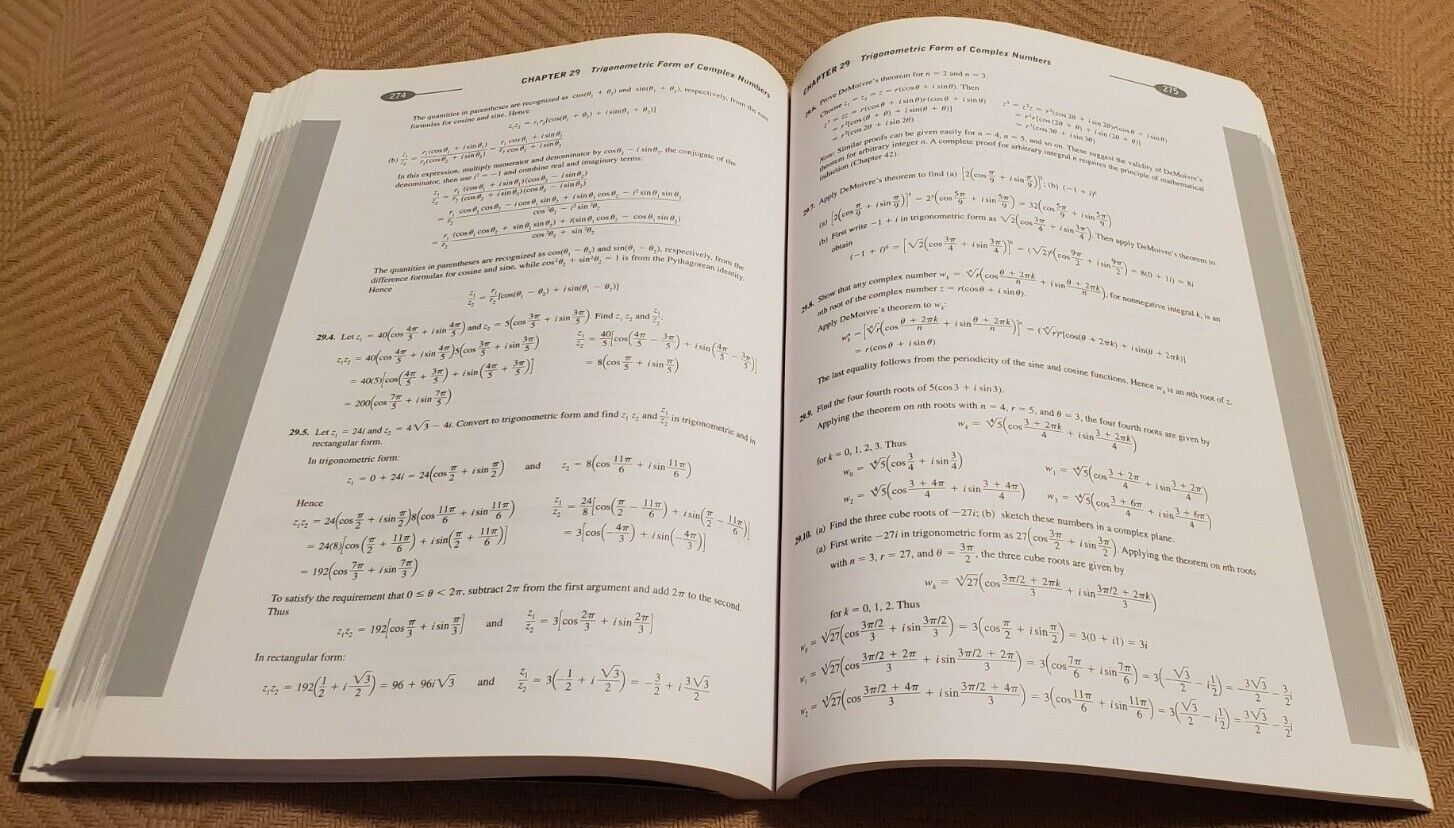 274
CHAPTER 29 Trigonometric Form of Complex Numbers
The quantities in parentheses are recognized as cos(θ₁ + θ₂) and sin(θ₁ + θ₂), respectively, from the sum
formulas for cosine and sine. Hence
z₁z₂ = r₁r₂[cos(θ₁ + θ₂) + i sin(θ₁ + θ₂)]
(b) z₁/z₂ = r₁(cos θ₁ + i sin θ₁)/r₂(cos θ₂ + i sin θ₂) = r₁ cos θ₁ + i sin θ₁/r₂ cos θ₂ + i sin θ₂
In this expression, multiply numerator and denominator by cos θ₂ − i sin θ₂, the conjugate of the
denominator, then use i² = −1 and combine real and imaginary terms:
z₁/z₂ = r₁/r₂ (cos θ₁ + i sin θ₁)(cos θ₂ − i sin θ₂)/(cos θ₂ + i sin θ₂)(cos θ₂ − i sin θ₂)
= r₁/r₂ cos θ₁ cos θ₂ − i cos θ₁ sin θ₂ + i sin θ₁ cos θ₂ − i² sin θ₁ sin θ₂/cos²θ₂ − i² sin²θ₂
= r₁/r₂ (cos θ₁ cos θ₂ + sin θ₁ sin θ₂) + i(sin θ₁ cos θ₂ − cos θ₁ sin θ₂)/cos²θ₂ + sin²θ₂
The quantities in parentheses are recognized as cos(θ₁ − θ₂) and sin(θ₁ − θ₂), respectively, from the
difference formulas for cosine and sine, while cos²θ₂ + sin²θ₂ = 1 is from the Pythagorean identity.
Hence
z₁/z₂ = r₁/r₂[cos(θ₁ − θ₂) + i sin(θ₁ − θ₂)]
29.4. Let z₁ = 40(cos 4π/5 + i sin 4π/5) and z₂ = 5(cos 3π/5 + i sin 3π/5). Find z₁ z₂ and z₁/z₂.
z₁z₂ = 40(cos 4π/5 + i sin 4π/5)5(cos 3π/5 + i sin 3π/5) z₁/z₂ = 40/5[cos(4π/5 − 3π/5) + i sin(4π/5 − 3π/5)]
= 40(5)[cos(4π/5 + 3π/5) + i sin(4π/5 + 3π/5)] = 8(cos π/5 + i sin π/5)
= 200(cos 7π/5 + i sin 7π/5)
29.5. Let z₁ = 24i and z₂ = 4√3 − 4i. Convert to trigonometric form and find z₁ z₂ and z₁/z₂ in trigonometric and in
rectangular form.
In trigonometric form:
z₁ = 0 + 24i = 24(cos π/2 + i sin π/2) and z₂ = 8(cos 11π/6 + i sin 11π/6)
Hence
z₁z₂ = 24(cos π/2 + i sin π/2)8(cos 11π/6 + i sin 11π/6) z₁/z₂ = 24/8[cos(π/2 − 11π/6) + i sin(π/2 − 11π/6)]
= 24(8)[cos(π/2 + 11π/6) + i sin(π/2 + 11π/6)] = 3[cos(−4π/3) + i sin(−4π/3)]
= 192(cos 7π/3 + i sin 7π/3)
To satisfy the requirement that 0 ≤ θ < 2π, subtract 2π from the first argument and add 2π to the second.
Thus
z₁z₂ = 192[cos π/3 + i sin π/3] and z₁/z₂ = 3[cos 2π/3 + i sin 2π/3]
In rectangular form:
z₁z₂ = 192(1/2 + i √3/2) = 96 + 96i√3 and z₁/z₂ = 3(−1/2 + i √3/2) = −3/2 + i 3√3/2
CHAPTER 29 Trigonometric Form of Complex Numbers
275
29.6. Prove DeMoivre's theorem for n = 2 and n = 3.
Choose z₁ = z₂ = z = r(cos θ + i sin θ). Then
z² = zz = r(cos θ + i sin θ)r(cos θ + i sin θ) z³ = z²z = r²(cos 2θ + i sin 2θ)r(cos θ + i sin θ)
= r²[cos(θ + θ) + i sin(θ + θ)] = r²r[cos(2θ + θ) + i sin(2θ + θ)]
= r²(cos 2θ + i sin 2θ) = r³(cos 3θ + i sin 3θ)
Note: Similar proofs can be given easily for n = 4, n = 5, and so on. These suggest the validity of DeMoivre's
theorem for arbitrary integer n. A complete proof for arbitrary integral n requires the principle of mathematical
induction (Chapter 42).
29.7. Apply DeMoivre's theorem to find (a) [2(cos π/9 + i sin π/9)]⁵; (b) (−1 + i)⁶
(a) [2(cos π/9 + i sin π/9)]⁵ = 2⁵(cos 5π/9 + i sin 5π/9) = 32(cos 5π/9 + i sin 5π/9)
(b) First write −1 + i in trigonometric form as √2(cos 3π/4 + i sin 3π/4). Then apply DeMoivre's theorem to
obtain
(−1 + i)⁶ = [√2(cos 3π/4 + i sin 3π/4)]⁶ = (√2)⁶(cos 9π/2 + i sin 9π/2) = 8(0 + 1i) = 8i
29.8. Show that any complex number wₖ = ⁿ√r(cos θ + 2πk/n + i sin θ + 2πk/n), for nonnegative integral k, is an
nth root of the complex number z = r(cos θ + i sin θ).
Apply DeMoivre's theorem to wₖ:
wₖⁿ = [ⁿ√r(cos θ + 2πk/n + i sin θ + 2πk/n)]ⁿ = (ⁿ√r)ⁿ[cos(θ + 2πk) + i sin(θ + 2πk)]
= r(cos θ + i sin θ)
The last equality follows from the periodicity of the sine and cosine functions. Hence wₖ is an nth root of z.
29.9. Find the four fourth roots of 5(cos 3 + i sin 3).
Applying the theorem on nth roots with n = 4, r = 5, and θ = 3, the four fourth roots are given by
wₖ = ⁴√5(cos 3 + 2πk/4 + i sin 3 + 2πk/4)
for k = 0, 1, 2, 3. Thus
w₀ = ⁴√5(cos 3/4 + i sin 3/4) w₁ = ⁴√5(cos 3 + 2π/4 + i sin 3 + 2π/4)
w₂ = ⁴√5(cos 3 + 4π/4 + i sin 3 + 4π/4) w₃ = ⁴√5(cos 3 + 6π/4 + i sin 3 + 6π/4)
29.10. (a) Find the three cube roots of −27i; (b) sketch these numbers in a complex plane.
(a) First write −27i in trigonometric form as 27(cos 3π/2 + i sin 3π/2). Applying the theorem on nth roots
with n = 3, r = 27, and θ = 3π/2, the three cube roots are given by
wₖ = ³√27(cos 3π/2 + 2πk/3 + i sin 3π/2 + 2πk/3)
for k = 0, 1, 2. Thus
w₀ = ³√27(cos 3π/2/3 + i sin 3π/2/3) = 3(cos π/2 + i sin π/2) = 3(0 + i1) = 3i
w₁ = ³√27(cos 3π/2 + 2π/3 + i sin 3π/2 + 2π/3) = 3(cos 7π/6 + i sin 7π/6) = 3(−√3/2 − i 1/2) = −3√3/2 − 3/2 i
w₂ = ³√27(cos 3π/2 + 4π/3 + i sin 3π/2 + 4π/3) = 3(cos 11π/6 + i sin 11π/6) = 3(√3/2 − i 1/2) = 3√3/2 − 3/2 i